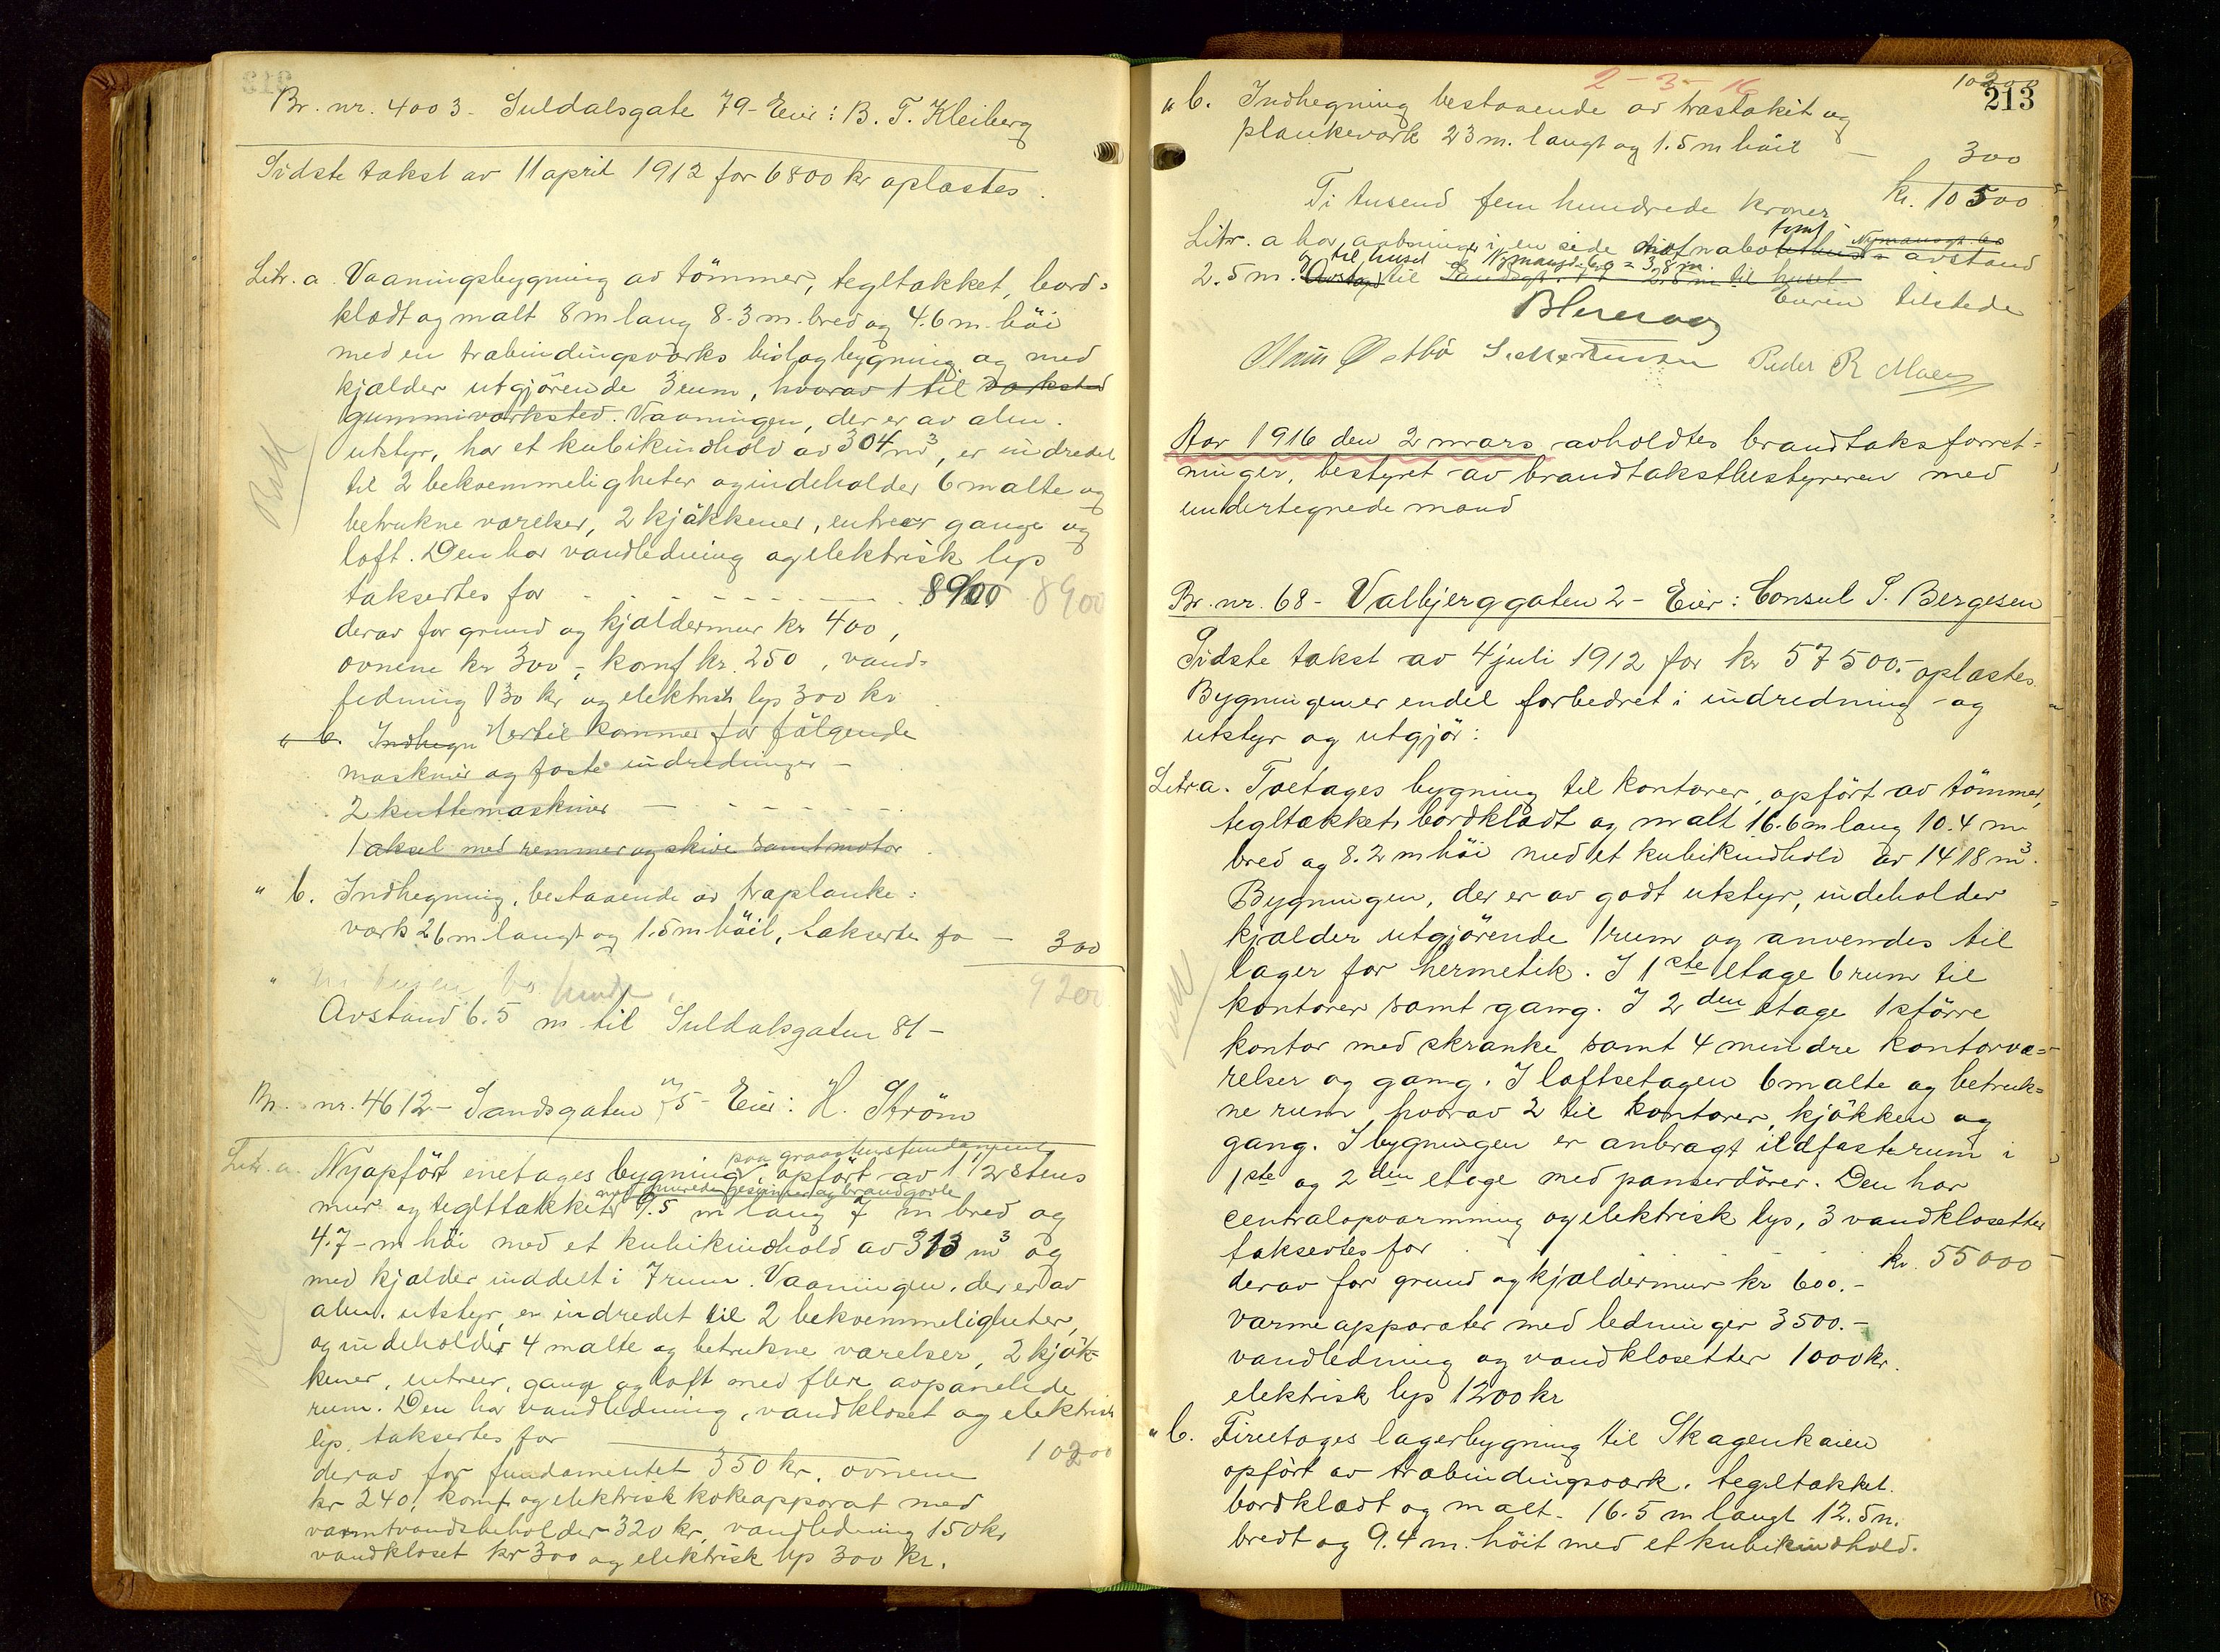 Br. nr. 4003 - Suldalsgate 79 - Eier: B. T. Kleiberg
Sidste takst av 11 april 1912 for 6800 kr oplæstes.
Litr. a Vaaningsbygning av tömmer, tegltækket, bord=
klædt og malt 8 m lang 8.3 m. bred og 4.6 m. höi
med en træbindingsværks bislagbygning og med
kjælder utgjörende 3 rum, hvorav 1 til
gummiverksted. Vaaningen, der er av alm.
utstyr, har et kubikindhold av 304 m³, er indredet
til 2 bekvemmeligheter og indeholder 6 malte og
betrukne værelser, 2 kjökkener, entreer gange og
loft. Den har vandledning og elektrisk lys
takseres for - - - - 8900 8900
derav for grund og kjældermur kr 400,
ovnene kr 300,- komf kr. 250, vand=
ledning 130 kr og elektrisk lys 300 kr
" b. Indhegn Hertil kommer for fölgende
maskiner og faste indredninger -
2 kuttemaskiner - - - -
1 aksel med remmer og skive samt motor
" b. Indhegning, bestaaende av træplanke=
værk 26 m langt og 1.5 m höit, takseres for - 300
9200
Avstand 6.5 m til Suldalsgaten 81 -
Br. nr. 4612 - Sandsgaten 75 - Eier: H. Ström
paa graastensfundament
Litr. a. Nyopfört enetages bygning, opfört av 1 1/2 stens
med murede gesimser og brandgavle
mur og tegltækket 9.5 m lang 7 m bred og
4.7 - m höi med et kubikindhold av 313 m³ og
med kjælder inddelt i 7 rum. Vaaningen, der er av
alm. utstyr, er indredet til 2 bekvemmeligheter,
og indeholder 4 malte og betrukne værelser, 2 kjök-
kener, entreer, gange og loft med flere avpanelede
rum. Den har vandledning, vandkloset og elektrisk
lys. taksertes for 10200
derav for fundamentet 350 kr. ovnene
kr 240, komf. og elektrisk kokeapparat med
varmtvandsbeholder 320 kr, vandledning 150 kr
vandkloset kr 300 og elektrisk lys 300 kr.
2 - 3 - 16
10200
213
" b. Indhegning bestaaende av træstakit og
plankeverk 23 m. langt og 1.5 m höit - 300
kr. 10500
Ti tusend fem hundrede kroner
tomt
Litr. a har aabninger i en side mot nabo avstand
og til huset Nymansgt. 60 = 3,8 m.
2.5 m. Avstand til Sandsgt. 2.5 m til huset
Eieren tilstede
Peder R Maeng
Aar 1916 den 2 mars avholdtes brandtaksforret=
ninger, bestyret av brandtakstbestyreren med
undertegnede mænd
Br. nr. 68 - Valbjerggaten 2 - Eier: Consul S. Bergesen
Sidste takst av 4 juli 1912 for kr 57500.- oplæstes.
Bygningen er endel forbedret i indredning - og
utstyr og utgjör:
Litr a. Toetages bygning til kontorer, opfört av tömmer,
tegltækket, bordklædt og malt 16.6 m lang 10.4 m
bred og 8.2 m höi med et kubikindhold av 1418 m³.
Bygningen, der er av godt utstyr, indeholder
kjælder utgjörende 1 rum og anvendes til
lager for hermetik. I 1ste etage 6 rum til
kontorer samt gang. I 2den etage 1 större
kontor med skranke samt 4 mindre kontorvæ=
relser og gang. I loftsetagen 6 malte og betruk=
ne rum hvorav 2 til kontorer, kjökken og
gang. I bygningen er anbragt ildfaste rum i
1ste og 2den etage med panserdörer. Den har
centralopvarmning og elektrisk lys, 3 vandklosetter
taksertes for - - - kr. 55000
derav for grund og kjældermur kr 600.-
varmeapparater med ledninger 3500.-
vandledning og vandklosetter 1000 kr.
elektrisk lys 1200 kr
" b. Firetages lagerbygning til Skagenkaien
opfört av træbindingsværk, tegltækket.
bordklædt og malt. 16.5 m langt 12.5 m.
bredt og 9.4 m. höit med et kubikindhold.